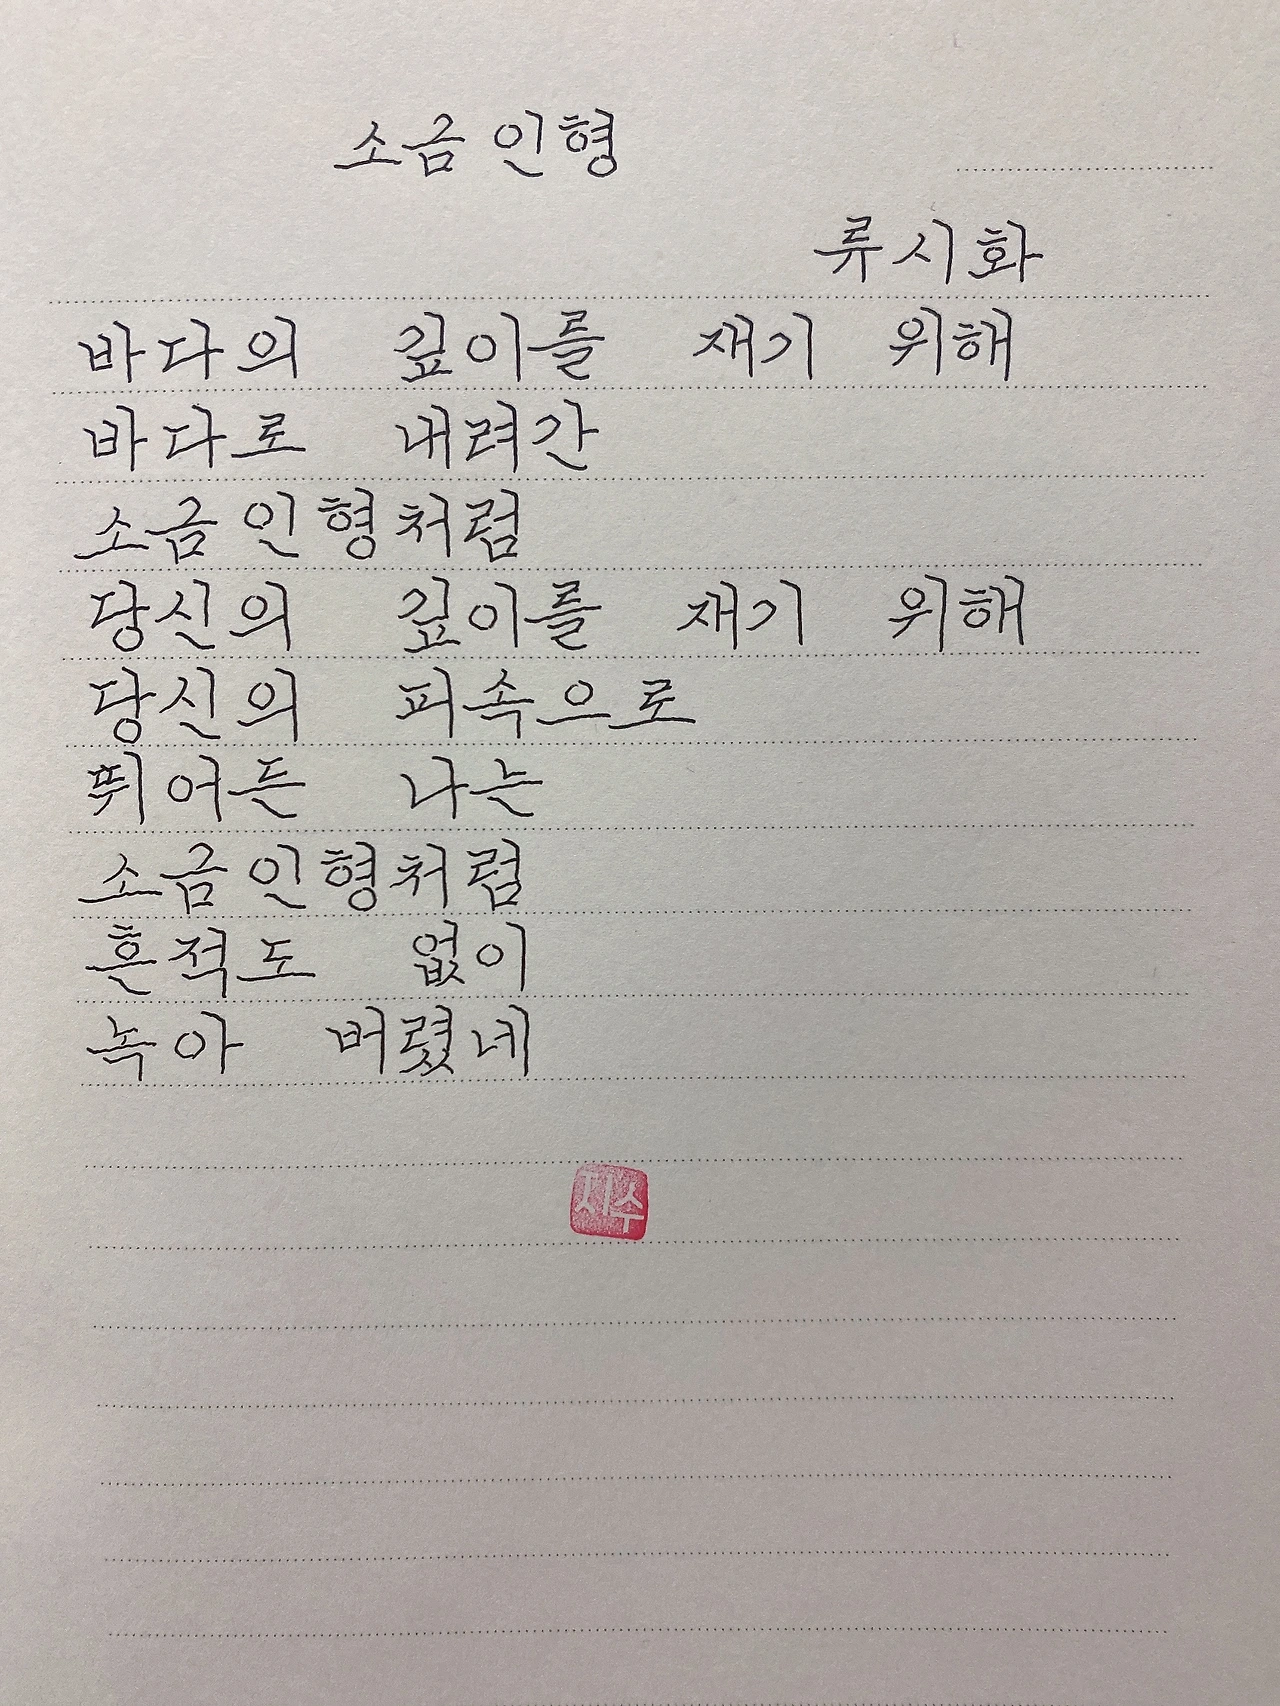 소금 인형
류시화
바다의 깊이를 재기 위해
바다로 내려간
소금인형처럼
당신의 깊이를 재기 위해
당신의 피속으로
뛰어든 나는
소금인형처럼
흔적도 없이
녹아 버렸네
지수